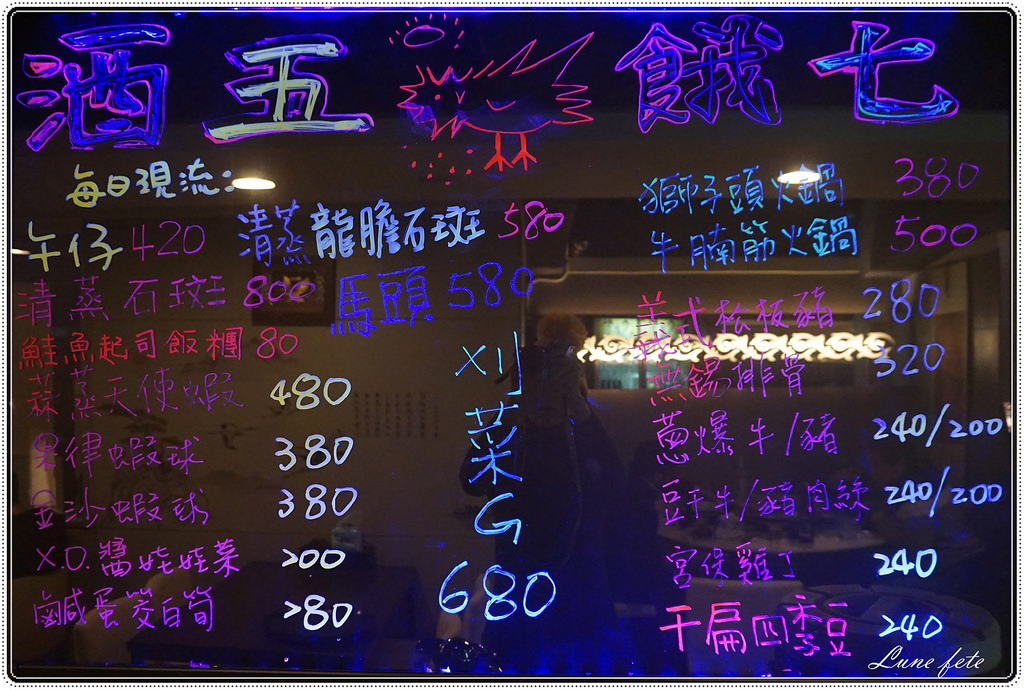 酒五 餓七
每日現流:
午仔 420
清蒸龍膽石斑 580
清蒸石斑 800
馬頭 580
鮭魚起司飯糰 80
蒜蒸天使蝦 480
果律蝦球 380
金沙蝦球 380
X.O.醬娃娃菜 200
鹹蛋筊白筍 280
XO
菜
G
680
獅子頭火鍋 380
牛腩筋火鍋 500
義式松板豬 280
無錫排骨 320
蔥爆牛/豬 240/200
豆干牛/豬肉絲 240/200
宮保雞丁 240
干扁四季豆 240
Lune fete